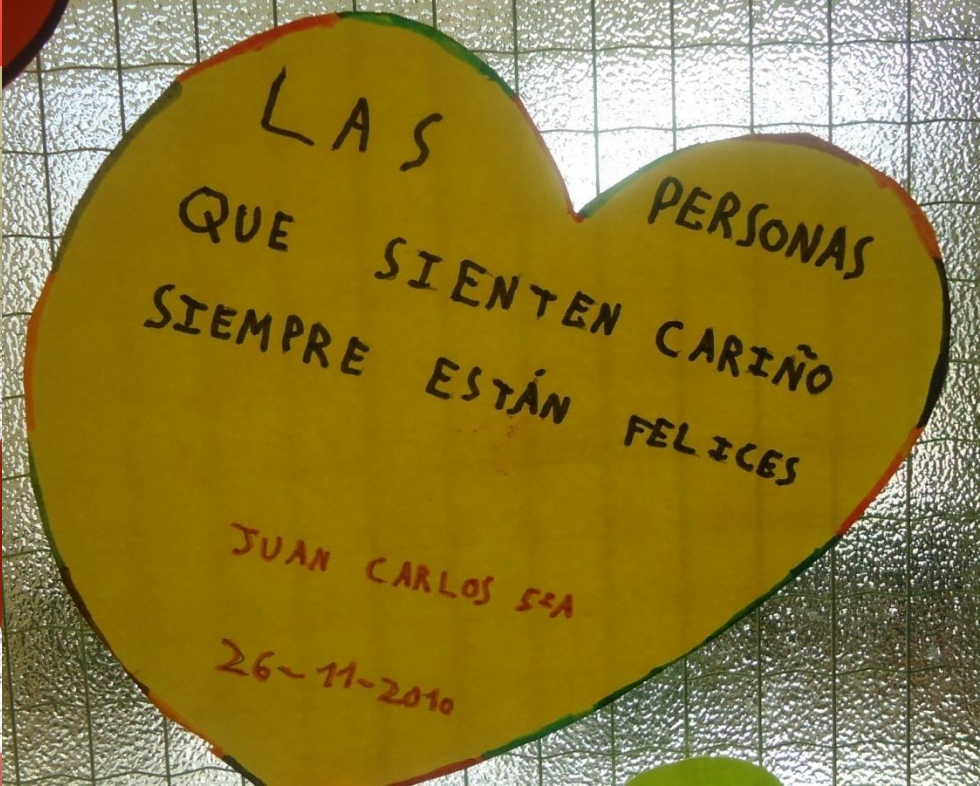 LAS PERSONAS
QUE SIENTEN CARIÑO
SIEMPRE ESTÁN FELICES
JUAN CARLOS 5ºA
26-11-2010